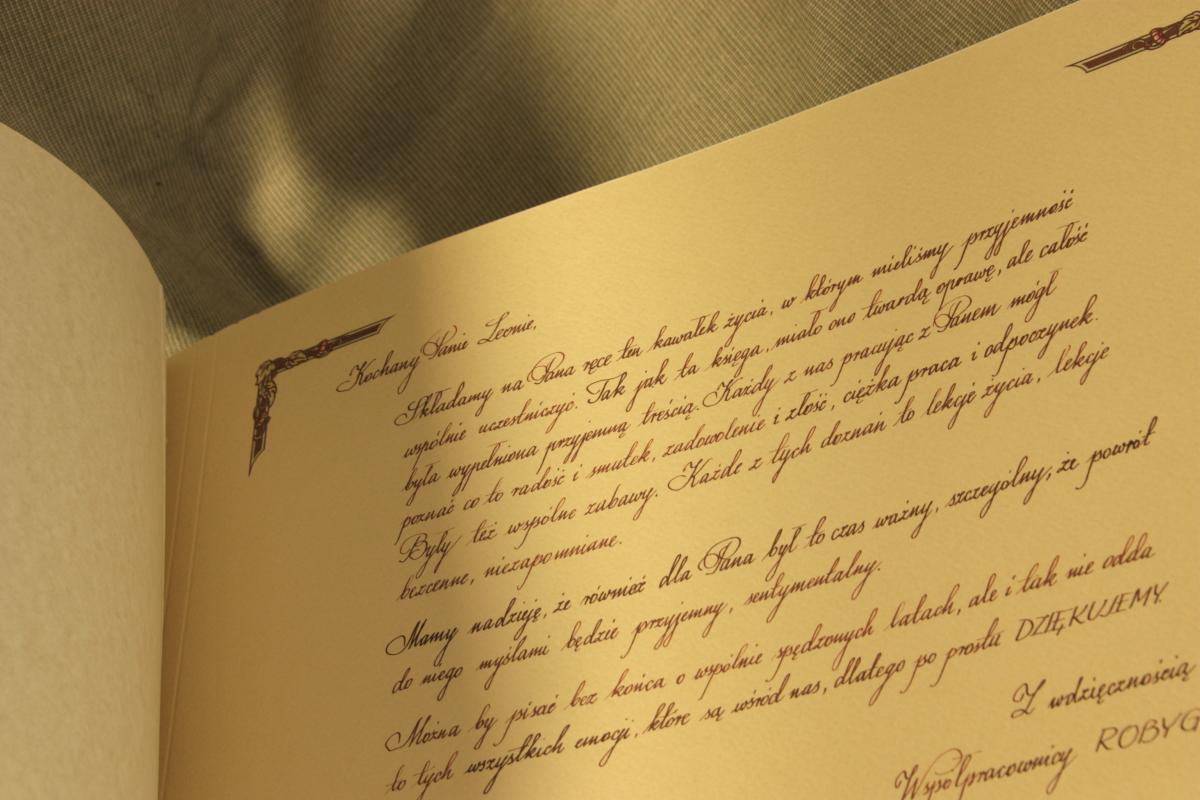 Kochany Panie Leonie,
Składamy na Pana ręce ten kawałek życia, w którym mieliśmy przyjemność
wspólnie uczestniczyć. Tak jak ta księga, miało ono twardą oprawę, ale całość
była wypełniona przyjemną treścią. Każdy z nas pracując z Panem mógł
poznać co to radość i smutek, zadowolenie i złość, ciężka praca i odpoczynek.
Były też wspólne zabawy. Każde z tych doznań to lekcje życia, lekcje
bezcenne, niezapomniane.
Mamy nadzieję, że również dla Pana był to czas ważny, szczególny, że powrót
do niego myślami będzie przyjemny, sentymentalny.
Można by pisać bez końca o wspólnie spędzonych latach, ale i tak nie odda
to tych wszystkich emocji, które są wśród nas, dlatego po prostu DZIĘKUJEMY.
Z wdzięcznością
Współpracownicy ROBYG